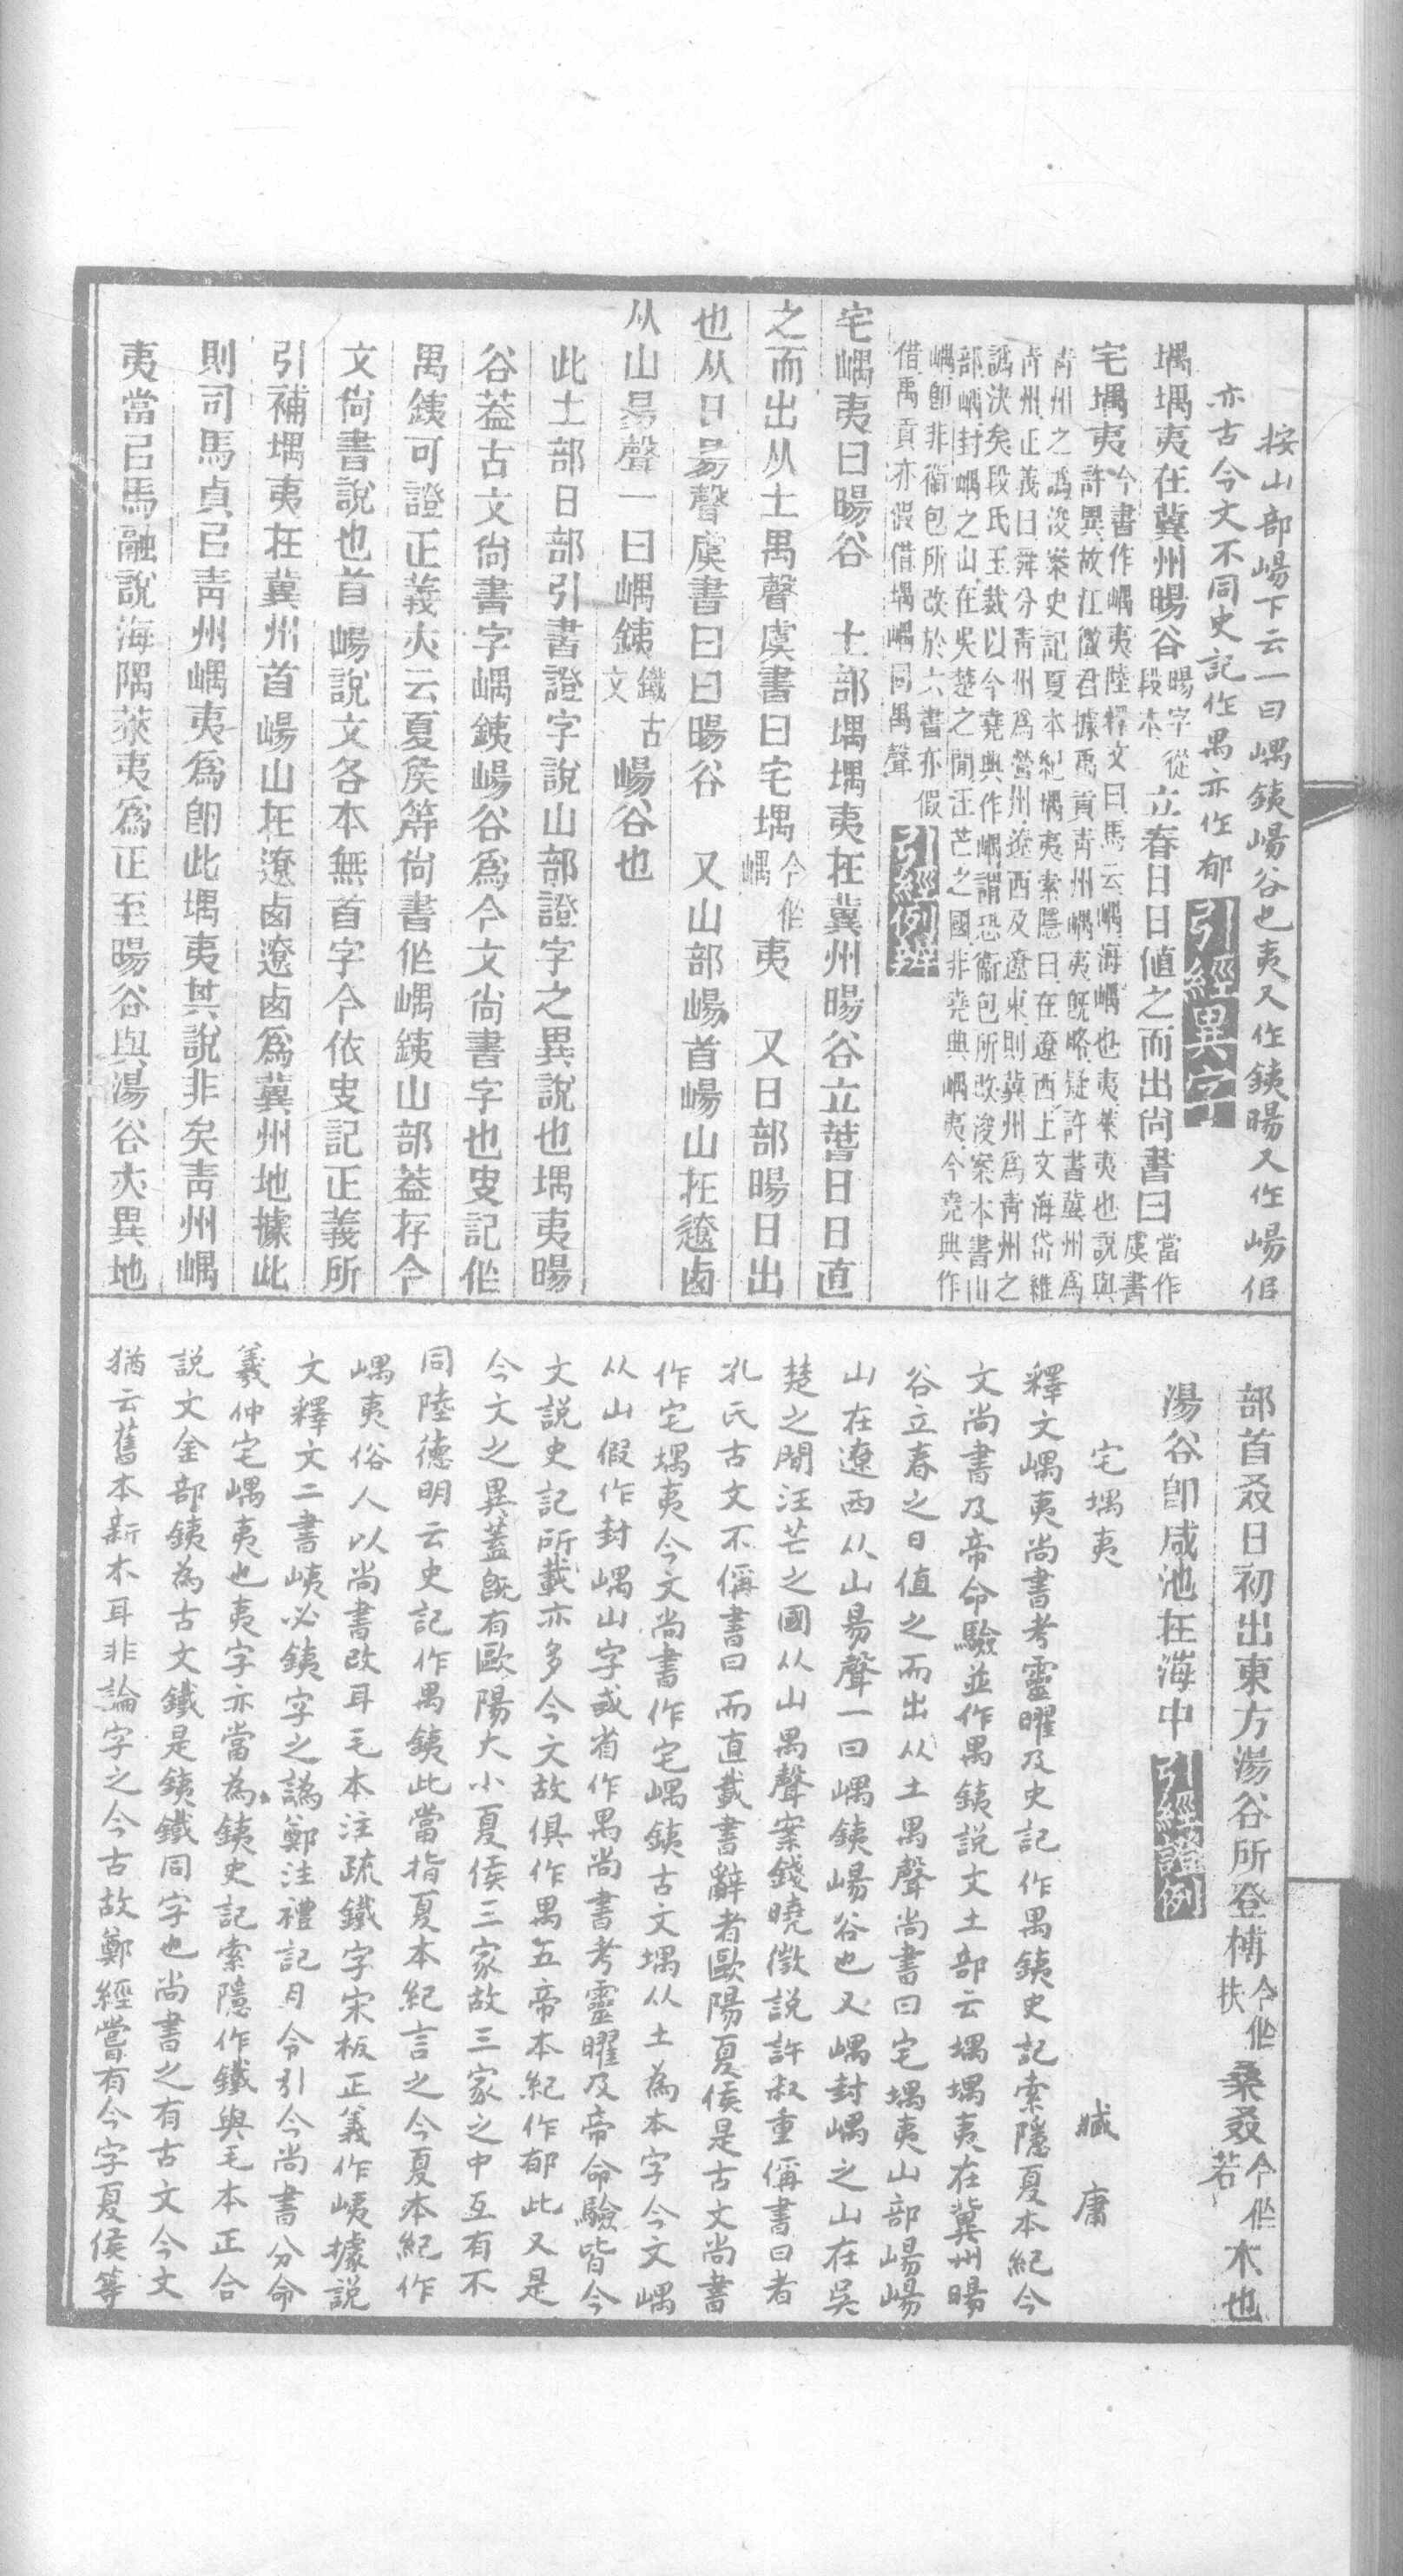 按山部崵下云一曰嵎銕崵谷也夷又作銕暘又作崵佀
亦古今文不同史記作禺亦作郁引經異字
堣堣夷在冀州暘谷暘字從段本立春日日値之而出尙書曰當作虞書
宅堣夷今書作嵎夷陸釋文曰馬云嵎海嵎也夷萊夷也說與
許異故江徵君據禹貢靑州嵎夷旣略疑許書冀州爲
靑州之譌浚案史記夏本紀堣夷索隱曰在遼西上文海岱維
靑州正義曰舜分靑州爲營州遼西及遼東則冀州爲靑州之
譌決矣段氏玉裁以今堯典作嵎謂恐衞包所改浚案本書山
部嵎封嵎之山在吳楚之閒汪芒之國非堯典嵎夷今堯典作
嵎卽非衞包所改於六書亦假
借禹貢亦假借堣嵎同禺聲引經例辨
宅嵎夷曰暘谷　土部堣堣夷在冀州暘谷立萅日日直
之而出从土禺聲虞書曰宅堣今作嵎夷　又日部暘日出
也从日昜聲虞書曰曰暘谷　又山部崵首崵山在遼鹵
从山昜聲一曰嵎銕鐵古文崵谷也
此土部日部引書證字說山部證字之異說也堣夷暘
谷葢古文尙書字嵎銕崵谷爲今文尙書字也史記作
禺銕可證正義夾云夏矦等尙書作嵎銕山部葢存今
文尙書說也首崵說文各本無首字今依史記正義所
引補堣夷在冀州首崵山在遼鹵遼鹵爲冀州地據此
則司馬貞㠯靑州嵎夷爲卽此堣夷其說非矣靑州嵎
夷當㠯馬融說海隅萊夷爲正至暘谷與湯谷夾異地
部首叒日初出東方湯谷所登榑今作扶桑叒今作若木也
湯谷卽咸池在海中引經證例
宅堣夷　臧庸
釋文嵎夷尚書考靈曜及史記作禺銕史記索隱夏本紀今
文尚書及帝命驗並作禺銕説文土部云堣堣夷在冀州暘
谷立春之日值之而出从土禺聲尚書曰宅堣夷山部崵崵
山在遼西从山昜聲一曰嵎銕崵谷也又嵎封嵎之山在吳
楚之間汪芒之國从山禺聲案錢曉徵説許叔重偁書曰者
孔氏古文不偁書曰而直載書辭者歐陽夏侯是古文尚書
作宅堣夷今文尚書作宅嵎銕古文堣从土為本字今文嵎
从山假作封嵎山字或省作禺尚書考靈曜及帝命驗皆今
文説史記所載亦多今文故俱作禺五帝本紀作郁此又是
今文之異蓋既有歐陽大小夏侯三家故三家之中互有不
同陸德明云史記作禺銕此當指夏本紀言之今夏本紀作
嵎夷俗人以尚書改耳毛本注疏鐵字宋板正義作峓據説
文釋文二書峓必銕字之譌鄭注禮記月令引今尚書分命
羲仲宅嵎夷也夷字亦當為銕史記索隱作鐵與毛本正合
説文金部銕為古文鐵是銕鐵同字也尚書之有古文今文
猶云舊本新本耳非論字之今古故鄭經嘗有今字夏侯等